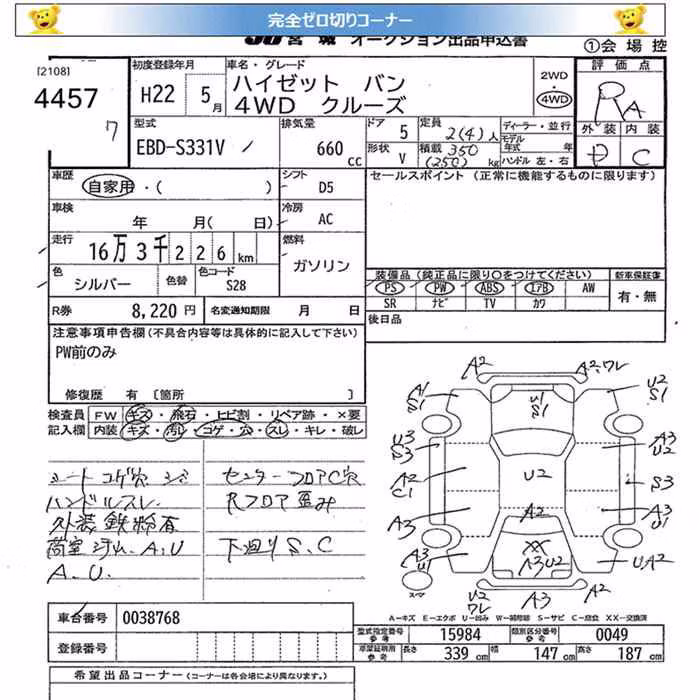 完全ゼロ切りコーナー
JU宮城 オークション出品申込書
①会場控
[2108]
4457
7
初度登録年月
H22 5月
車名・グレード
ハイゼット バン
4WD クルーズ
2WD・4WD
評価点
RA
外装 内装
D C
型式
EBD-S331V
排気量
660cc
ドア 5
定員 2(4)人
形状 V
積載 350(250)kg
ディーラー・並行
モデル年式 年
ハンドル 左・右
車歴
自家用・( )
シフト D5
セールスポイント (正常に機能するものに限ります)
車検 年 月( 日)
冷房 AC
走行 16万3千226km
燃料
ガソリン
色 シルバー
色替
色コード S28
装備品(純正品に限り○をつけてください)
新車保証書
PS PW ABS エアB AW
SR ナビ TV カワ
有・無
R券 8,220円
名変通知期限 月 日
後日品
注意事項申告欄(不具合内容等は具体的に記入して下さい)
PW前のみ
修復歴 有〔箇所 〕
検査員記入欄
FW キズ・飛石・ヒビ割・リペア跡・×要
内装 キズ・汚れ・コゲ・穴・スレ・キレ・破レ
シート コゲ穴
センターフロアC穴
ハンドルスレ
Rフロア歪み
外装鉄粉有
荷室 汚れ、A、U
下廻り S、C
A.U.
A2
A2・ワレ
A1
S1
U1
S1
U2
S1
U3
S3
A3
U2
A2
C1
U2
S3
A3
A2
A3
U1
A3
U1
XX
A3U2
U,A2
スマ
U2
ワレ
A3
A2
A-キズ E-エクボ U-凹み W-補修跡 S-サビ C-腐食 XX-交換済
車台番号 0038768
型式指定番号参考 15984
類別区分番号参考 0049
登録番号
車庫証明用参考 長さ 339cm 幅 147cm 高さ 187cm
希望出品コーナー(コーナーは各会場により異なります。)